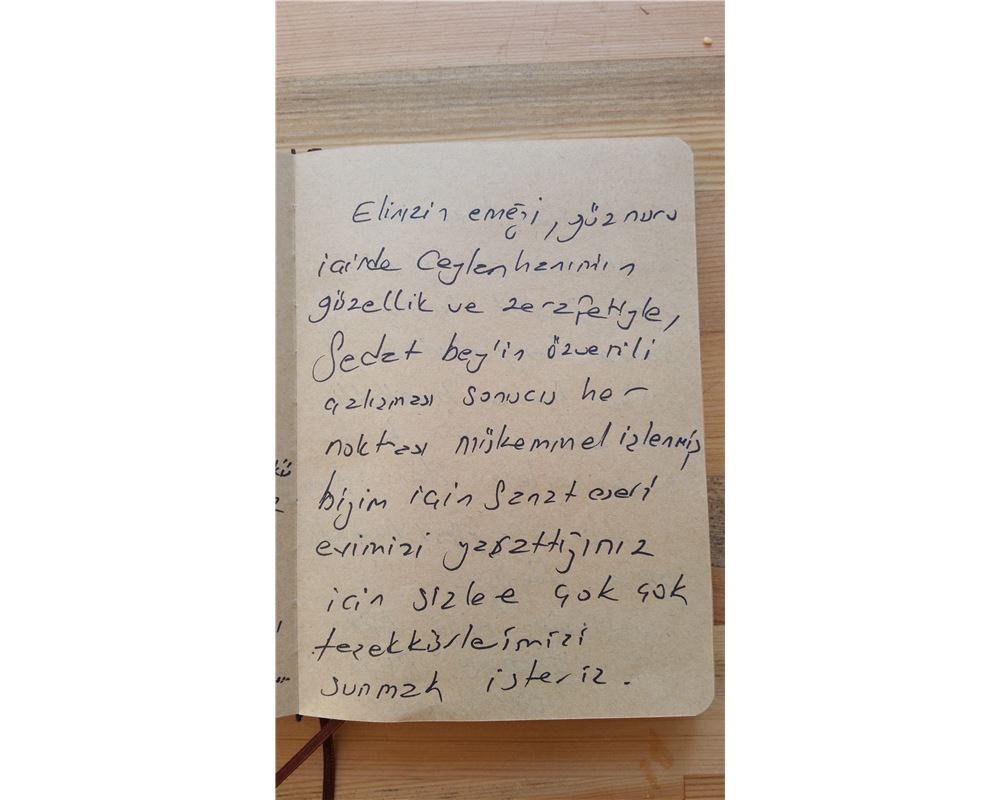 Elinizin emeği, göz nuru
içinde Ceylan hanımın
güzellik ve zerafetiyle,
Sedat bey'in özverili
çalışması sonucu her
noktası mükemmel izlenmiş
bizim için sanat eseri
evimizi yarattığınız
için sizlere çok çok
teşekkürlerimizi
sunmak isteriz.